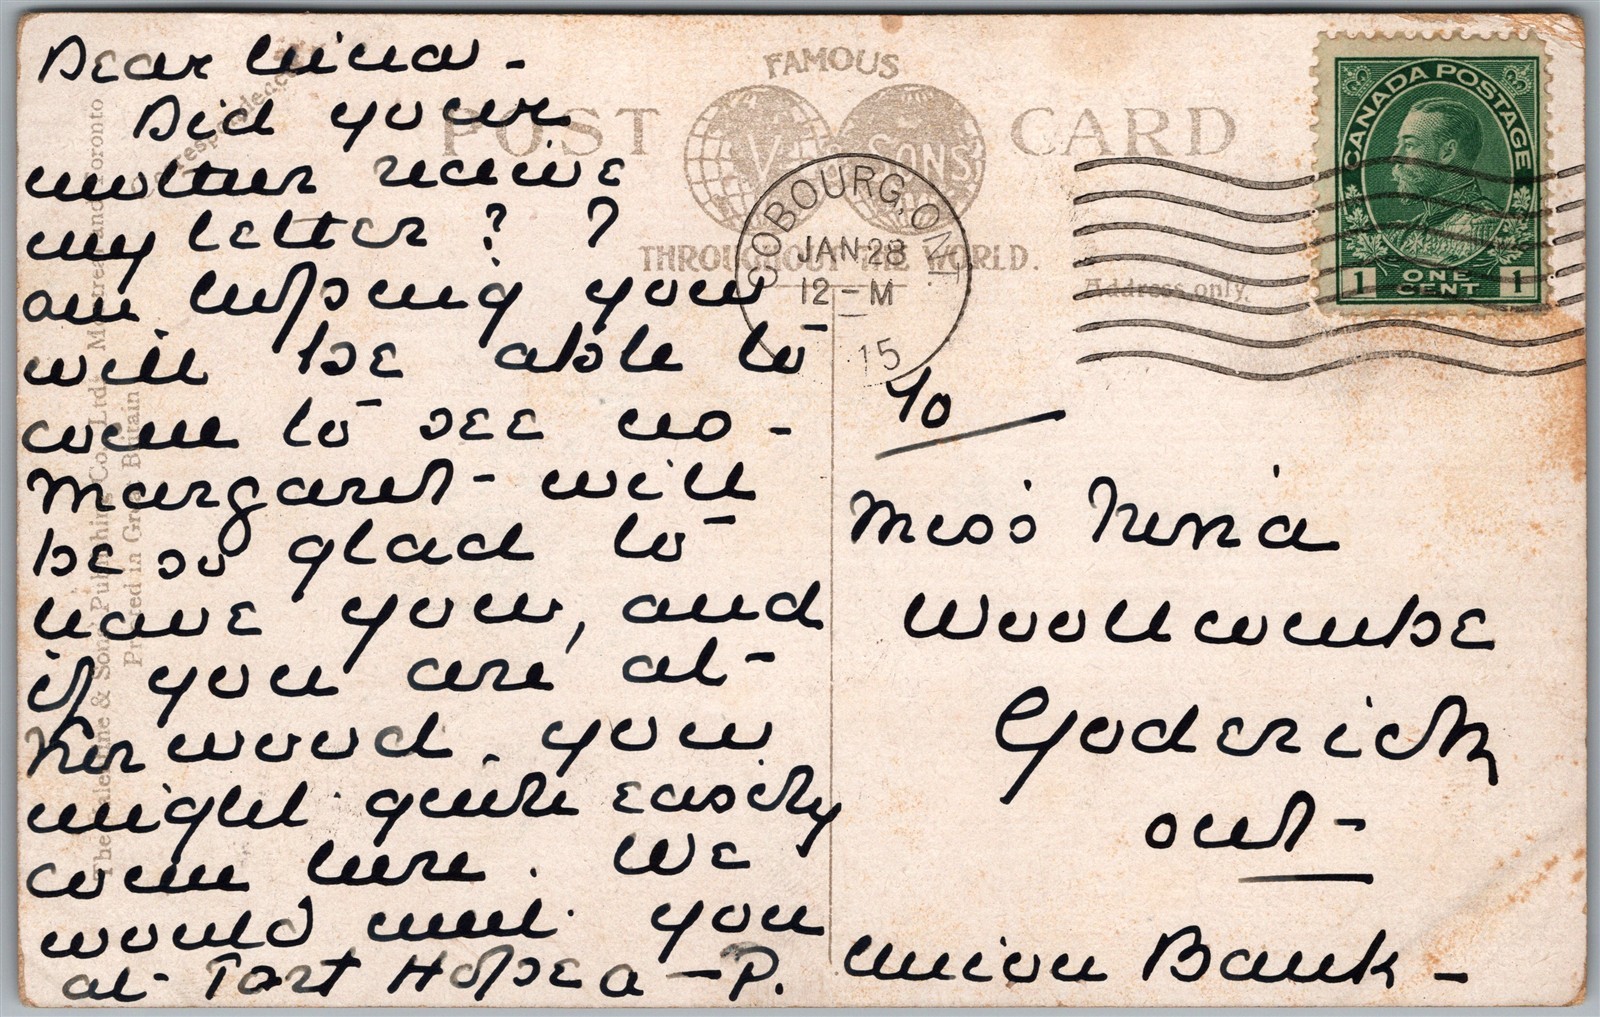 Dear Nina -
Did your
mother receive
my letter? ?
am hoping you
will be able to
come to see us -
Margaret - will
be so glad to
have you, and
if you are at -
Norwood. you
might quite easily
come here. We
would meet you
at - Port Hope - P.
FAMOUS
POST CARD
V & SONS
THROUGHOUT THE WORLD.
Address only.
COBOURG, ONT.
JAN 28
12 - M
15
CANADA POSTAGE
1 ONE CENT 1
To
Miss Nina
Woollcombe
Goderich
Ont -
Union Bank -
The Valentine & Sons Publishing Co., Ltd. Montreal and Toronto
Printed in Great Britain